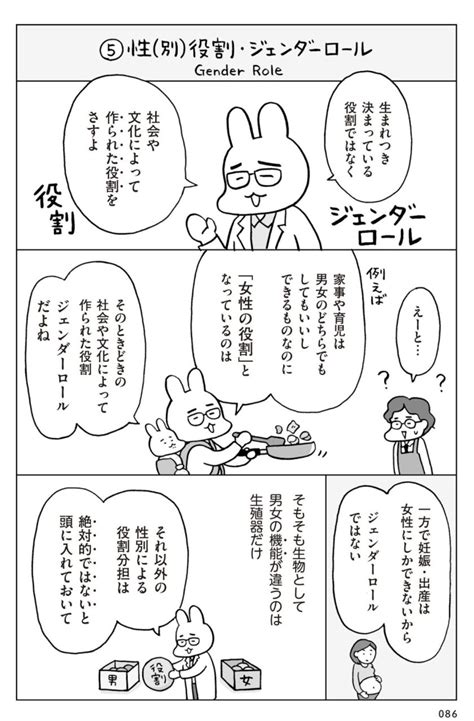 ⑤性(別)役割・ジェンダーロール
Gender Role
生まれつき
決まっている
役割ではなく
ジェンダー
ロール
社会や
文化によって
作られた役割を
さすよ
役割
例えば
えーと…
?
?
家事や育児は
男女のどちらでも
してもいいし
できるものなのに
「女性の役割」と
なっているのは
そのときどきの
社会や文化によって
作られた役割
ジェンダーロール
だよね
一方で妊娠・出産は
女性にしかできないから
ジェンダーロール
ではない
そもそも生物として
男女の機能が違うのは
生殖器だけ
それ以外の
性別による
役割分担は
絶対的ではないと
頭に入れておいて
男
役割
女
086